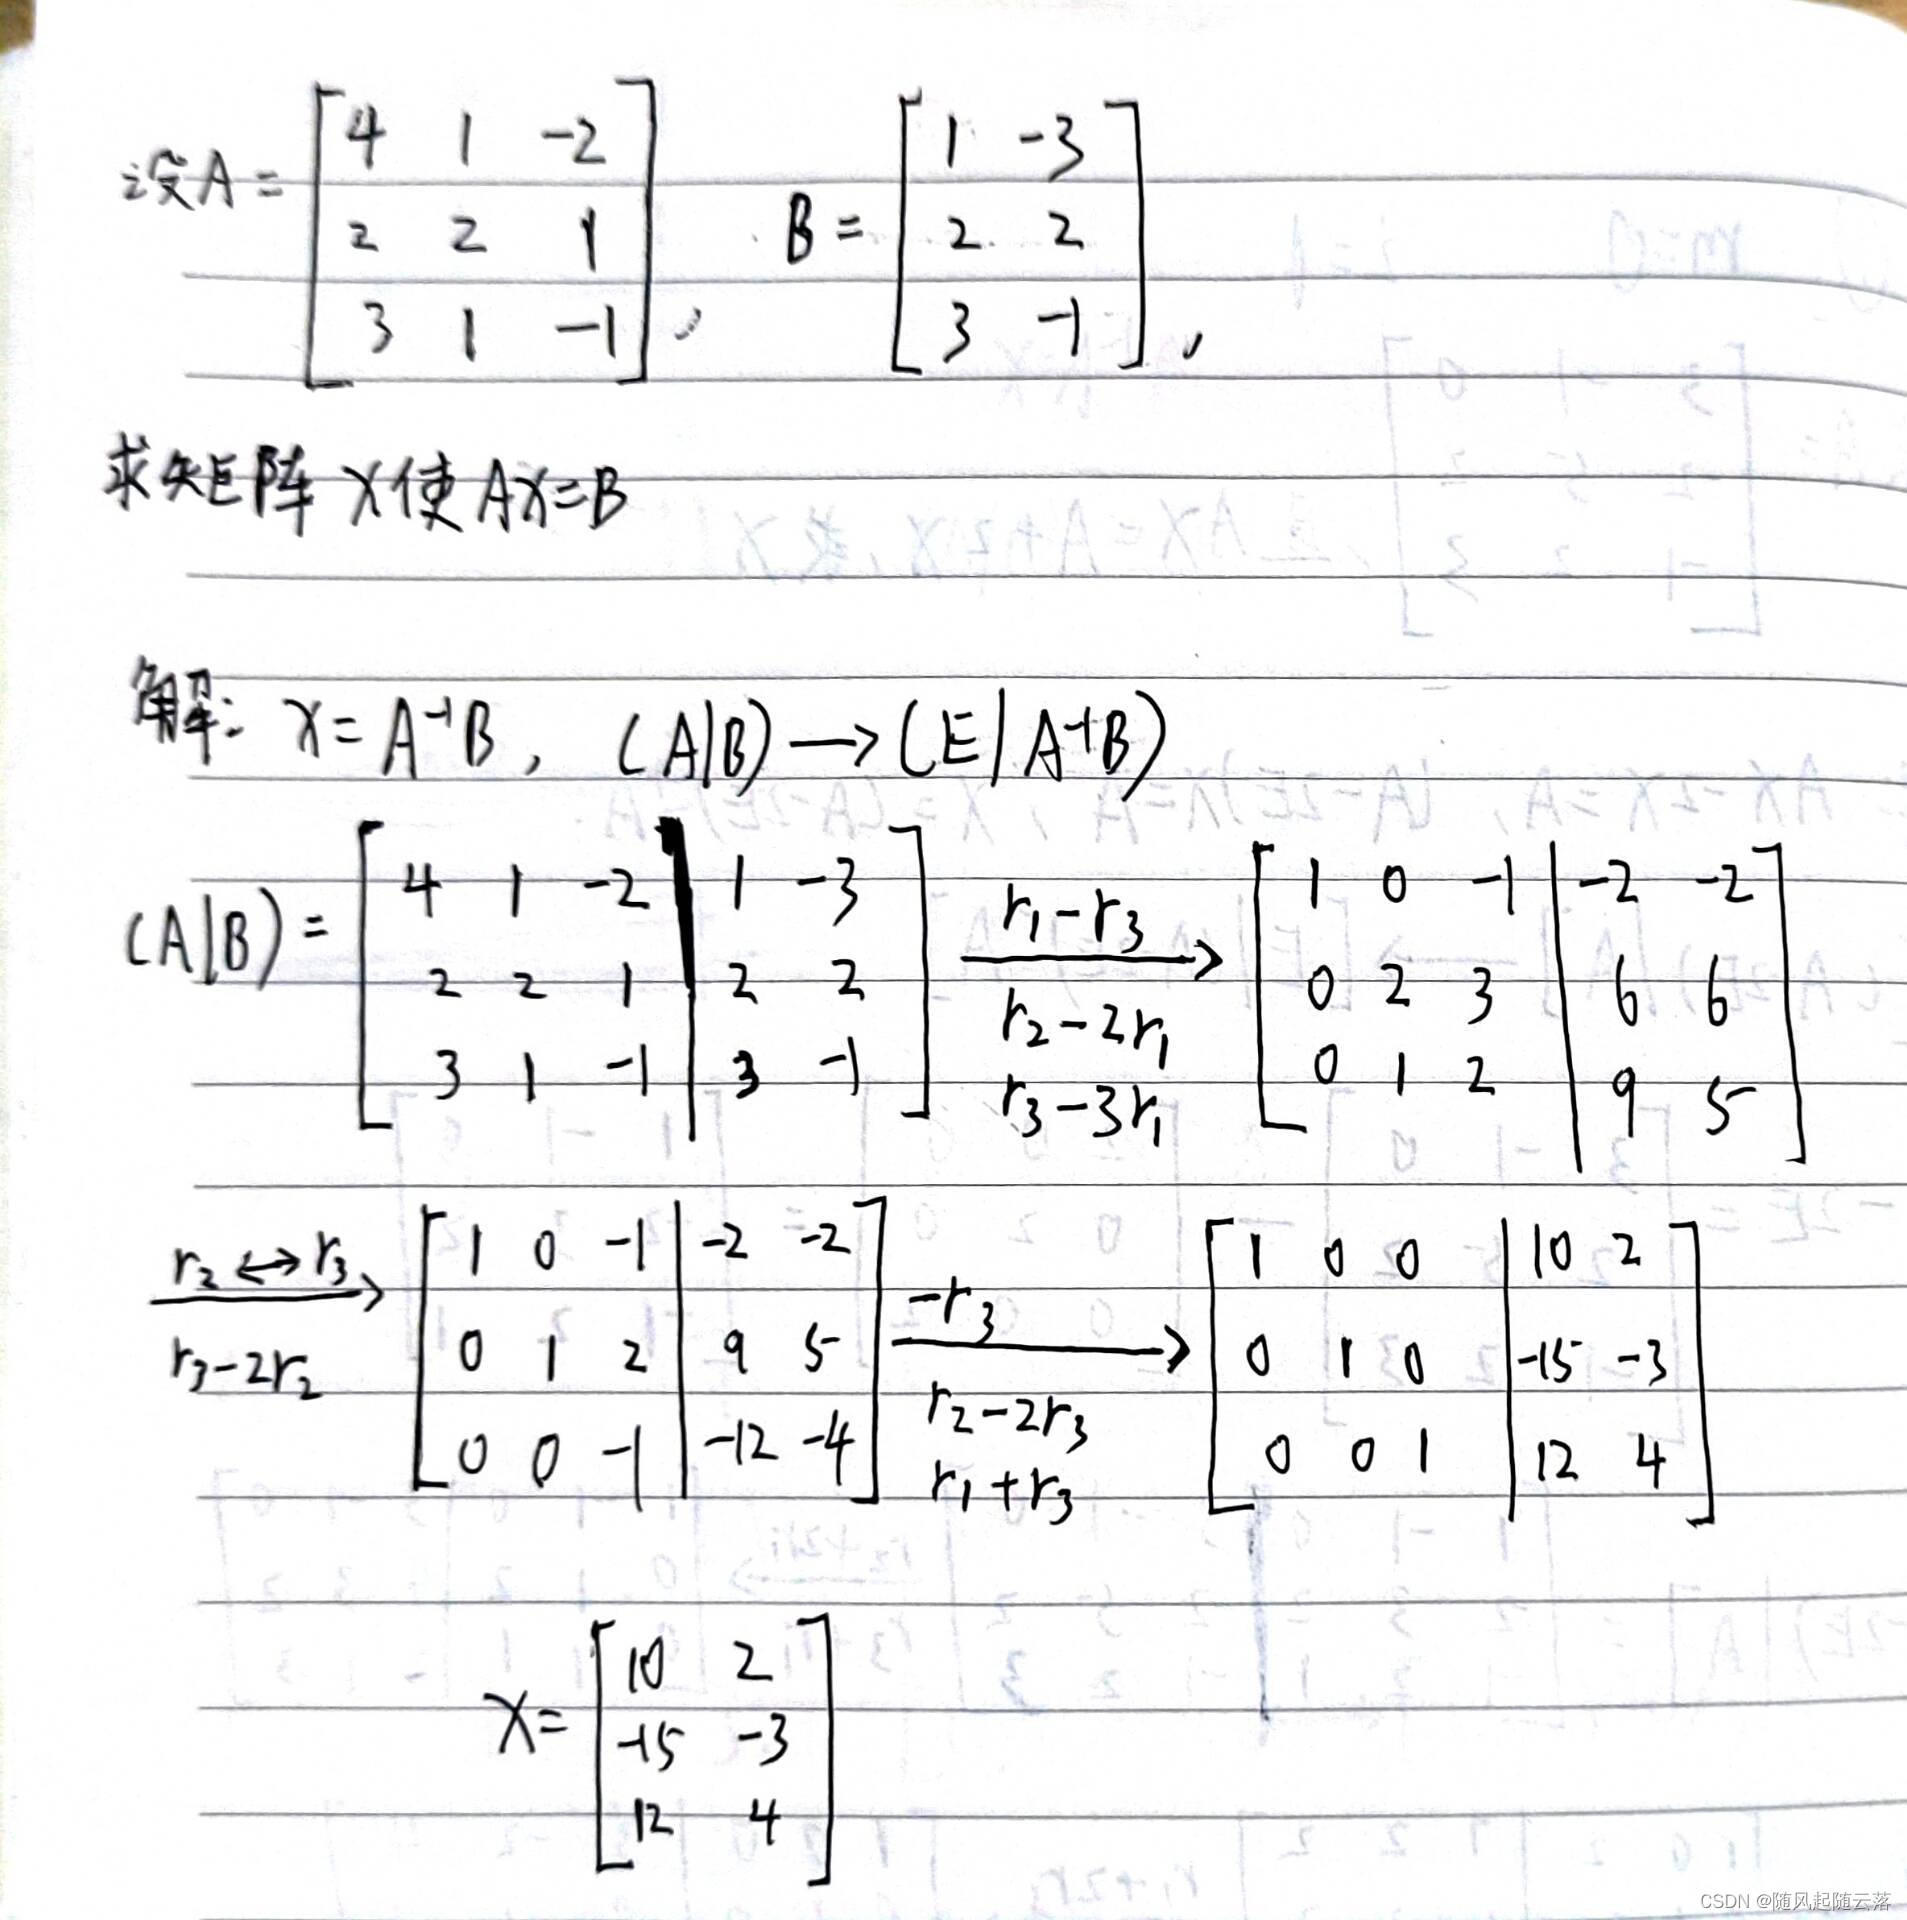 设A = [4 1 -2
2 2 1
3 1 -1], B = [1 -3
2 2
3 -1],
求矩阵 X使AX=B
解: X = A⁻¹B, (A|B) → (E|A⁻¹B)
(A|B) = [4 1 -2 | 1 -3
2 2 1 | 2 2
3 1 -1 | 3 -1]
r₁-r₃
r₂-2r₁
r₃-3r₁
[1 0 -1 | -2 -2
0 2 3 | 6 6
0 1 2 | 9 5]
r₂↔r₃
r₃-2r₂
[1 0 -1 | -2 -2
0 1 2 | 9 5
0 0 -1 | -12 -4]
-r₃
r₂-2r₃
r₁+r₃
[1 0 0 | 10 2
0 1 0 | -15 -3
0 0 1 | 12 4]
X = [10 2
-15 -3
12 4]
CSDN @随风起随云落